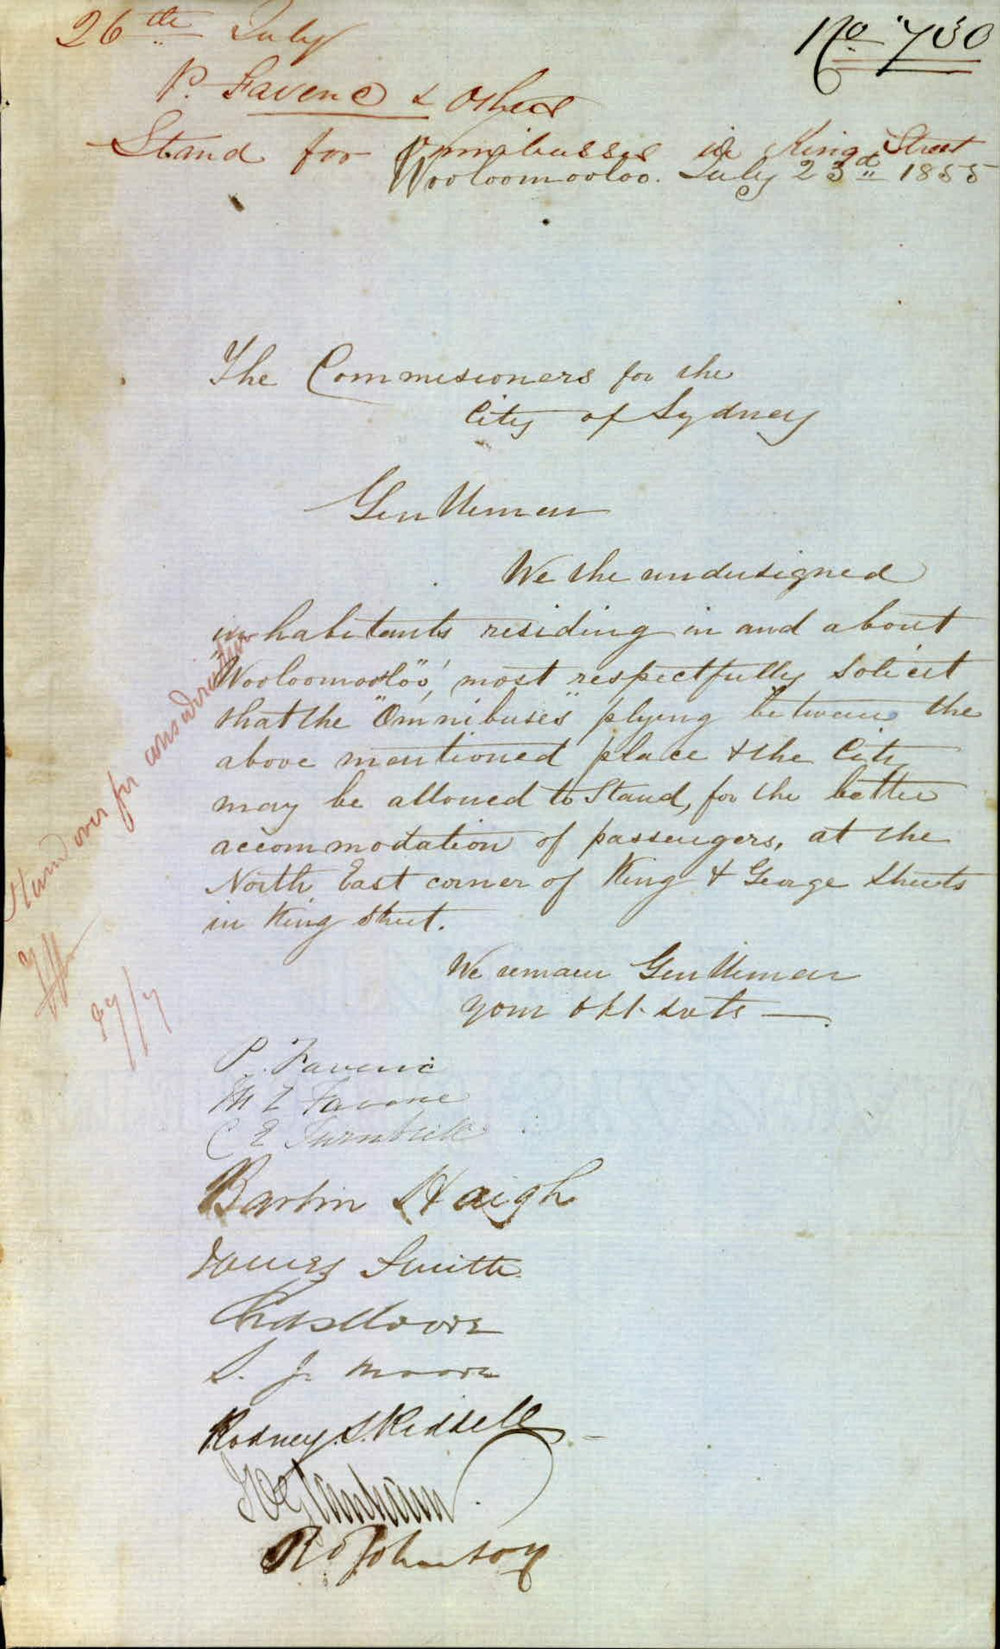 26th July
No. 730
P. Favenc & Others
Stand for Omnibusses in King Street
Wooloomooloo. July 23d 1855
The Commisioners for the
City of Sydney
Gentlemen
We the undersigned
inhabitants residing in and about
"Wooloomooloo", most respectfully solicit
that the "Omnibuses" plying between the
above mentioned place & the City
may be allowed to Stand, for the better
accommodation of passengers, at the
North East corner of King & George Streets
in King Street.
We remain Gentlemen
your obt. svts
Stand over for consideration
27/7
P. Favenc
Favenc
C E Turnbull
Bartin Haigh
James Smith
Chas Moore
S. J. Moore
Rodney S. Riddell
R. Johnson